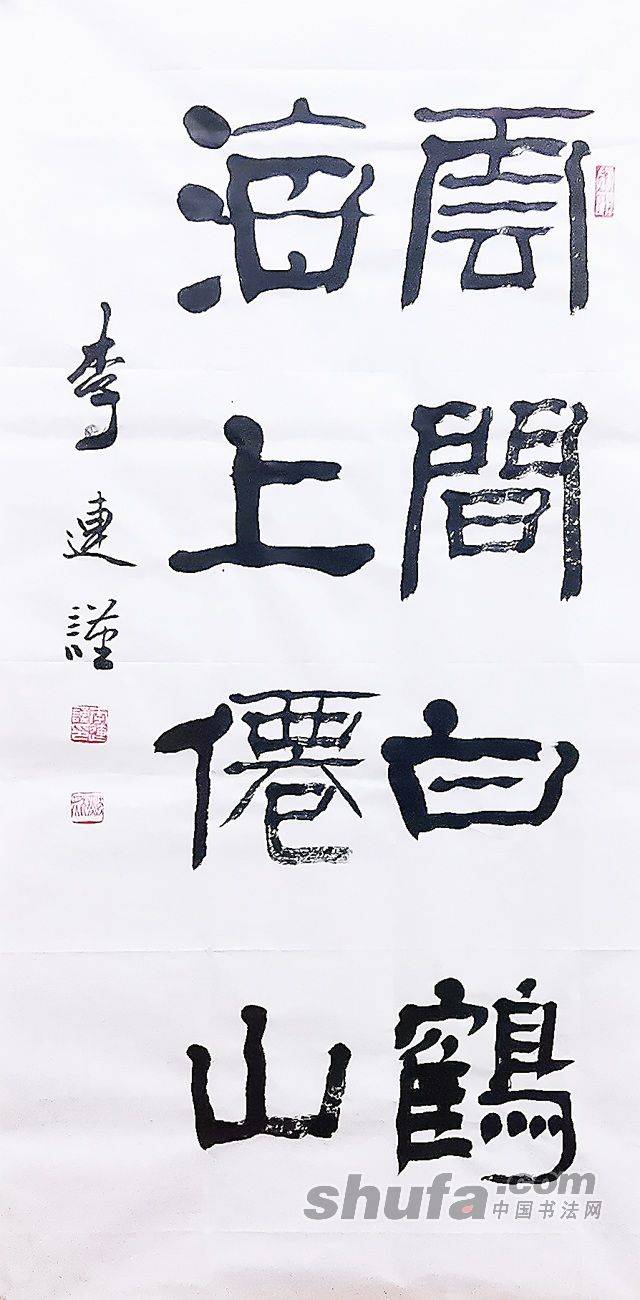 雲間白鶴
海上僊山
李連謹
shufa.com
中国书法网